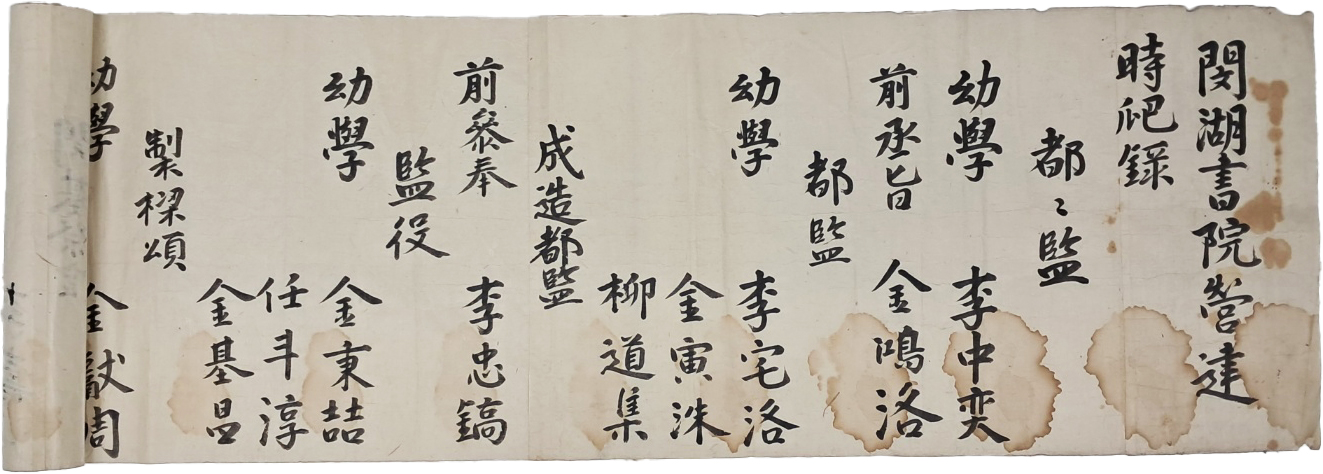 閔湖書院營建
時爬錄
都〻監
幼學 李中奕
前丞旨 金鴻洛
都監
幼學 李宅洛
金寅洙
柳道集
成造都監
前叅奉 李忠鎬
監役
幼學 金秉喆
任斗淳
金基昌
製樑頌
幼學 金獻周